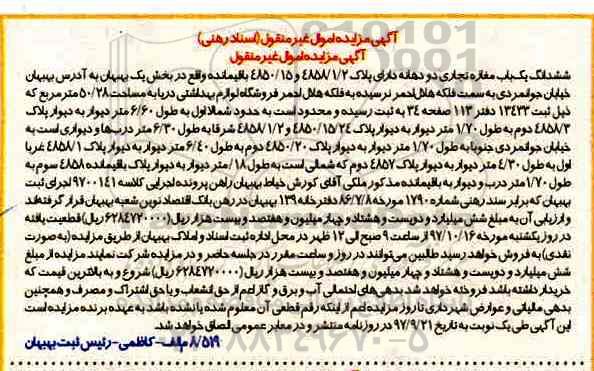 آگهی مزایده اموال غیر منقول (اسناد رهنی)
آگهی مزایده اموال غیر منقول
ششدانگ یک باب مغازه تجاری دو دهانه دارای پلاک ۴۸۵۸/۱/۲ و ۴۸۵۰/۱۵ باقیمانده واقع در بخش یک بهبهان به آدرس بهبهان
خیابان جوانمردی به سمت فلکه هلال احمر نرسیده به فلکه هلال احمر فروشگاه لوازم بهداشتی دریا به مساحت ۵۰/۲۸ متر مربع که
ذیل ثبت ۱۳۴۳۳ دفتر ۱۱۳ صفحه ۳۴ به ثبت رسیده و محدود است به حدود شمالا اول به طول ۶/۶۰ متر دیوار به دیوار پلاک
۴۸۵۸/۳ دوم به طول ۱/۷۰ متر دیوار به دیوار پلاک ۴۸۵۰/۱۵/۲۴ و ۴۸۵۸/۱/۲ شرقا به طول ۶/۳۰ متر دربها و دیواری است به
خیابان جوانمردی جنوبا به طول ۱/۷۰ متر دیوار به دیوار پلاک ۴۸۵۰/۲۰ دوم به طول ۶/۴۰ متر دیوار به دیوار پلاک ۴۸۵۸/۱ غربا
اول به طول ۴/۳۰ متر دیوار به دیوار پلاک ۴۸۵۷ دوم که شمالی است به طول ۱۸/ متر دیوار به دیوار پلاک باقیمانده ۴۸۵۸ سوم به
طول ۱/۷۰ متر درب و دیوار به باقیمانده مذکور ملکی آقای کورش خیاط بهبهان راهن پرونده اجرایی کلاسه ۹۷۰۰۱۴۱ اجرای ثبت
بهبهان که برابر سند رهنی شماره ۱۷۹۰ مورخه ۸۶/۷/۸ دفترخانه ۱۳۹ بهبهان در رهن بانک اقتصاد نوین شعبه بهبهان قرار گرفته اند
و ارزیابی آن به مبلغ شش میلیارد و دویست و هشتاد و چهار میلیون و هفتصد و بیست هزار ریال (۶۲۸۴۷۲۰۰۰۰ ریال) قطعیت یافته
در روز یکشنبه مورخه ۹۷/۱۰/۱۶ از ساعت ۹ صبح الی ۱۲ ظهر در محل اداره ثبت اسناد و املاک بهبهان از طریق مزایده (به صورت
نقدی) به فروش خواهد رسید طالبین می توانند در روز و ساعت مقرر در جلسه حاضر و در مزایده شرکت نمایند مزایده از مبلغ
شش میلیارد و دویست و هشتاد و چهار میلیون و هفتصد و بیست هزار ریال (۶۲۸۴۷۲۰۰۰۰ ریال) شروع و به بالاترین قیمت که
خریدار داشته باشد فروخته خواهد شد بدهی های احتمالی آب و برق و گاز اعم از حق انشعاب و یا حق اشتراک و مصرف و همچنین
بدهی مالیاتی و عوارض شهرداری تا روز مزایده اعم از اینکه رقم قطعی آن معلوم شده یا نشده باشد به عهده برنده مزایده است
این آگهی طی یک نوبت به تاریخ ۹۷/۹/۲۱ در روزنامه منتشر و در معابر عمومی الصاق خواهد شد.
۸/۵۱۹ م الف - کاظمی - رئیس ثبت بهبهان